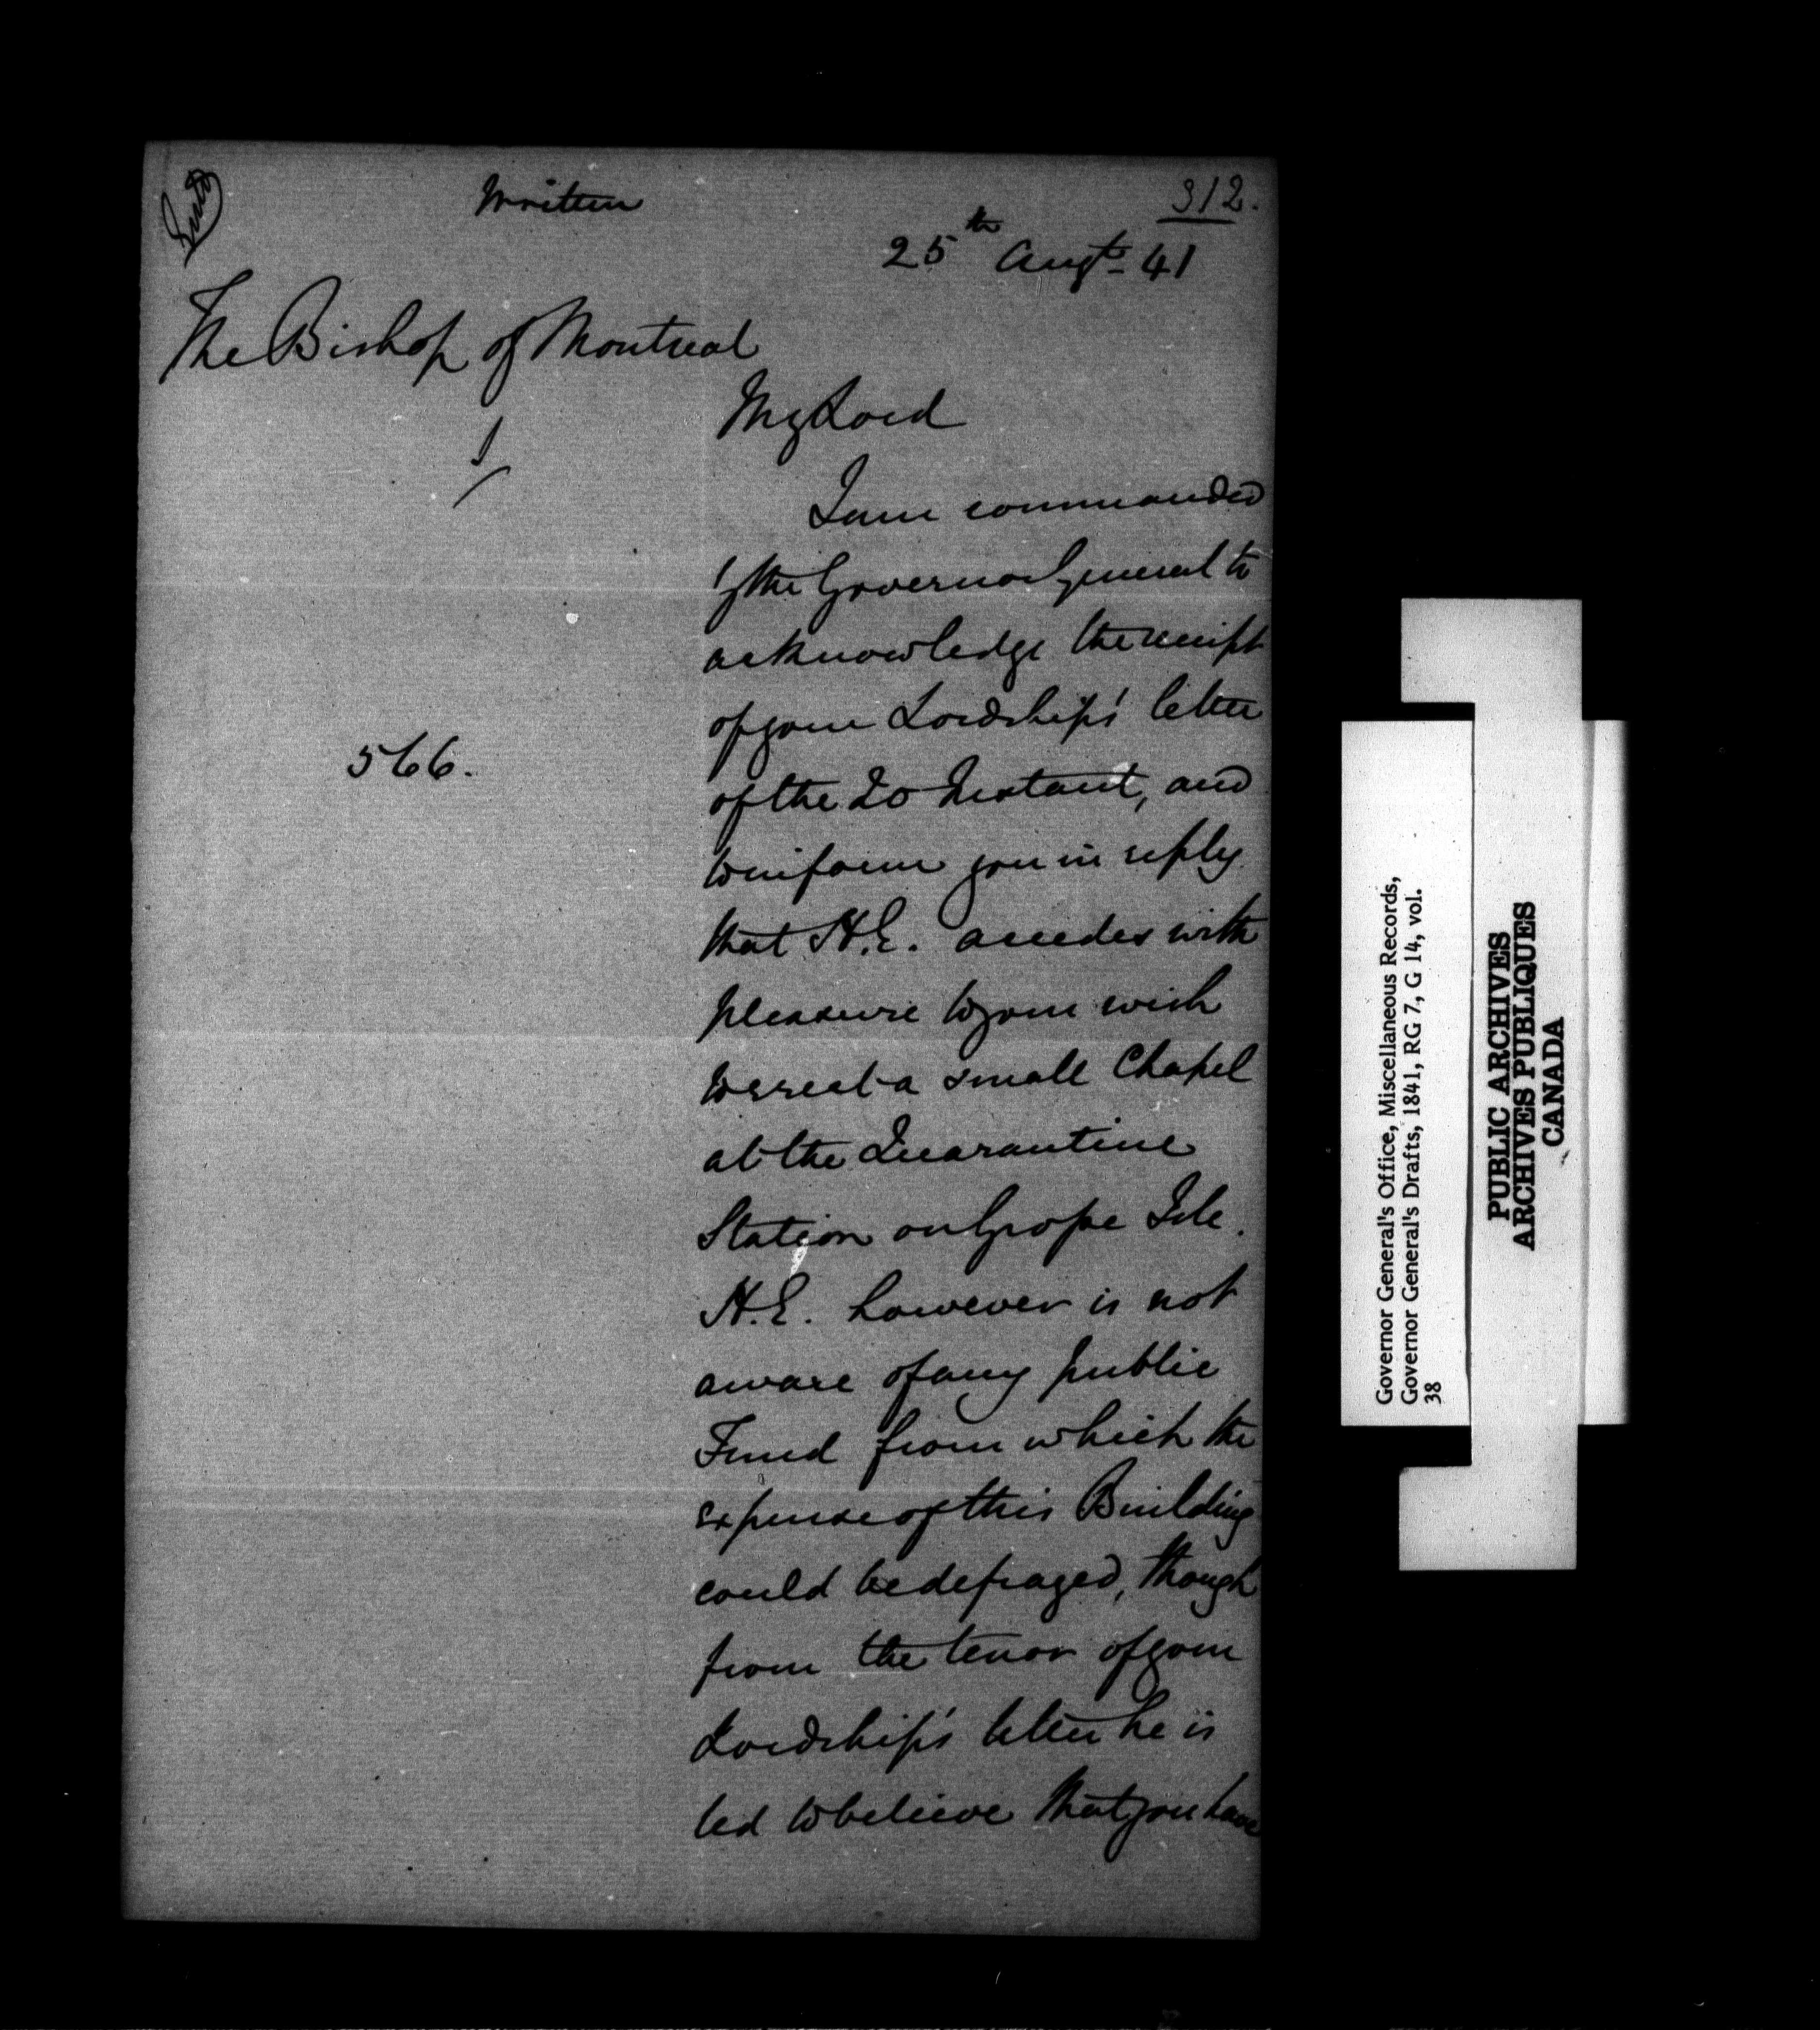 written
312.
25th Augt- 41
The Bishop of Montreal
My Lord
I am commanded
by the Governor General to
acknowledge the receipt
of your Lordship's letter
of the 20 Instant, and
566.
to inform you in reply
that H.E. accedes with
pleasure to your wish
to erect a small Chapel
at the Quarantine
Station on Grosse Isle.
H.E. however is not
aware of any public
Fund from which the
expense of this Building
could be defrayed, though
from the tenor of your
Lordship's letter he is
led to believe that you have
Governor General's Office, Miscellaneous Records,
Governor General's Drafts, 1841, RG 7, G 14, vol.
38
PUBLIC ARCHIVES
ARCHIVES PUBLIQUES
CANADA